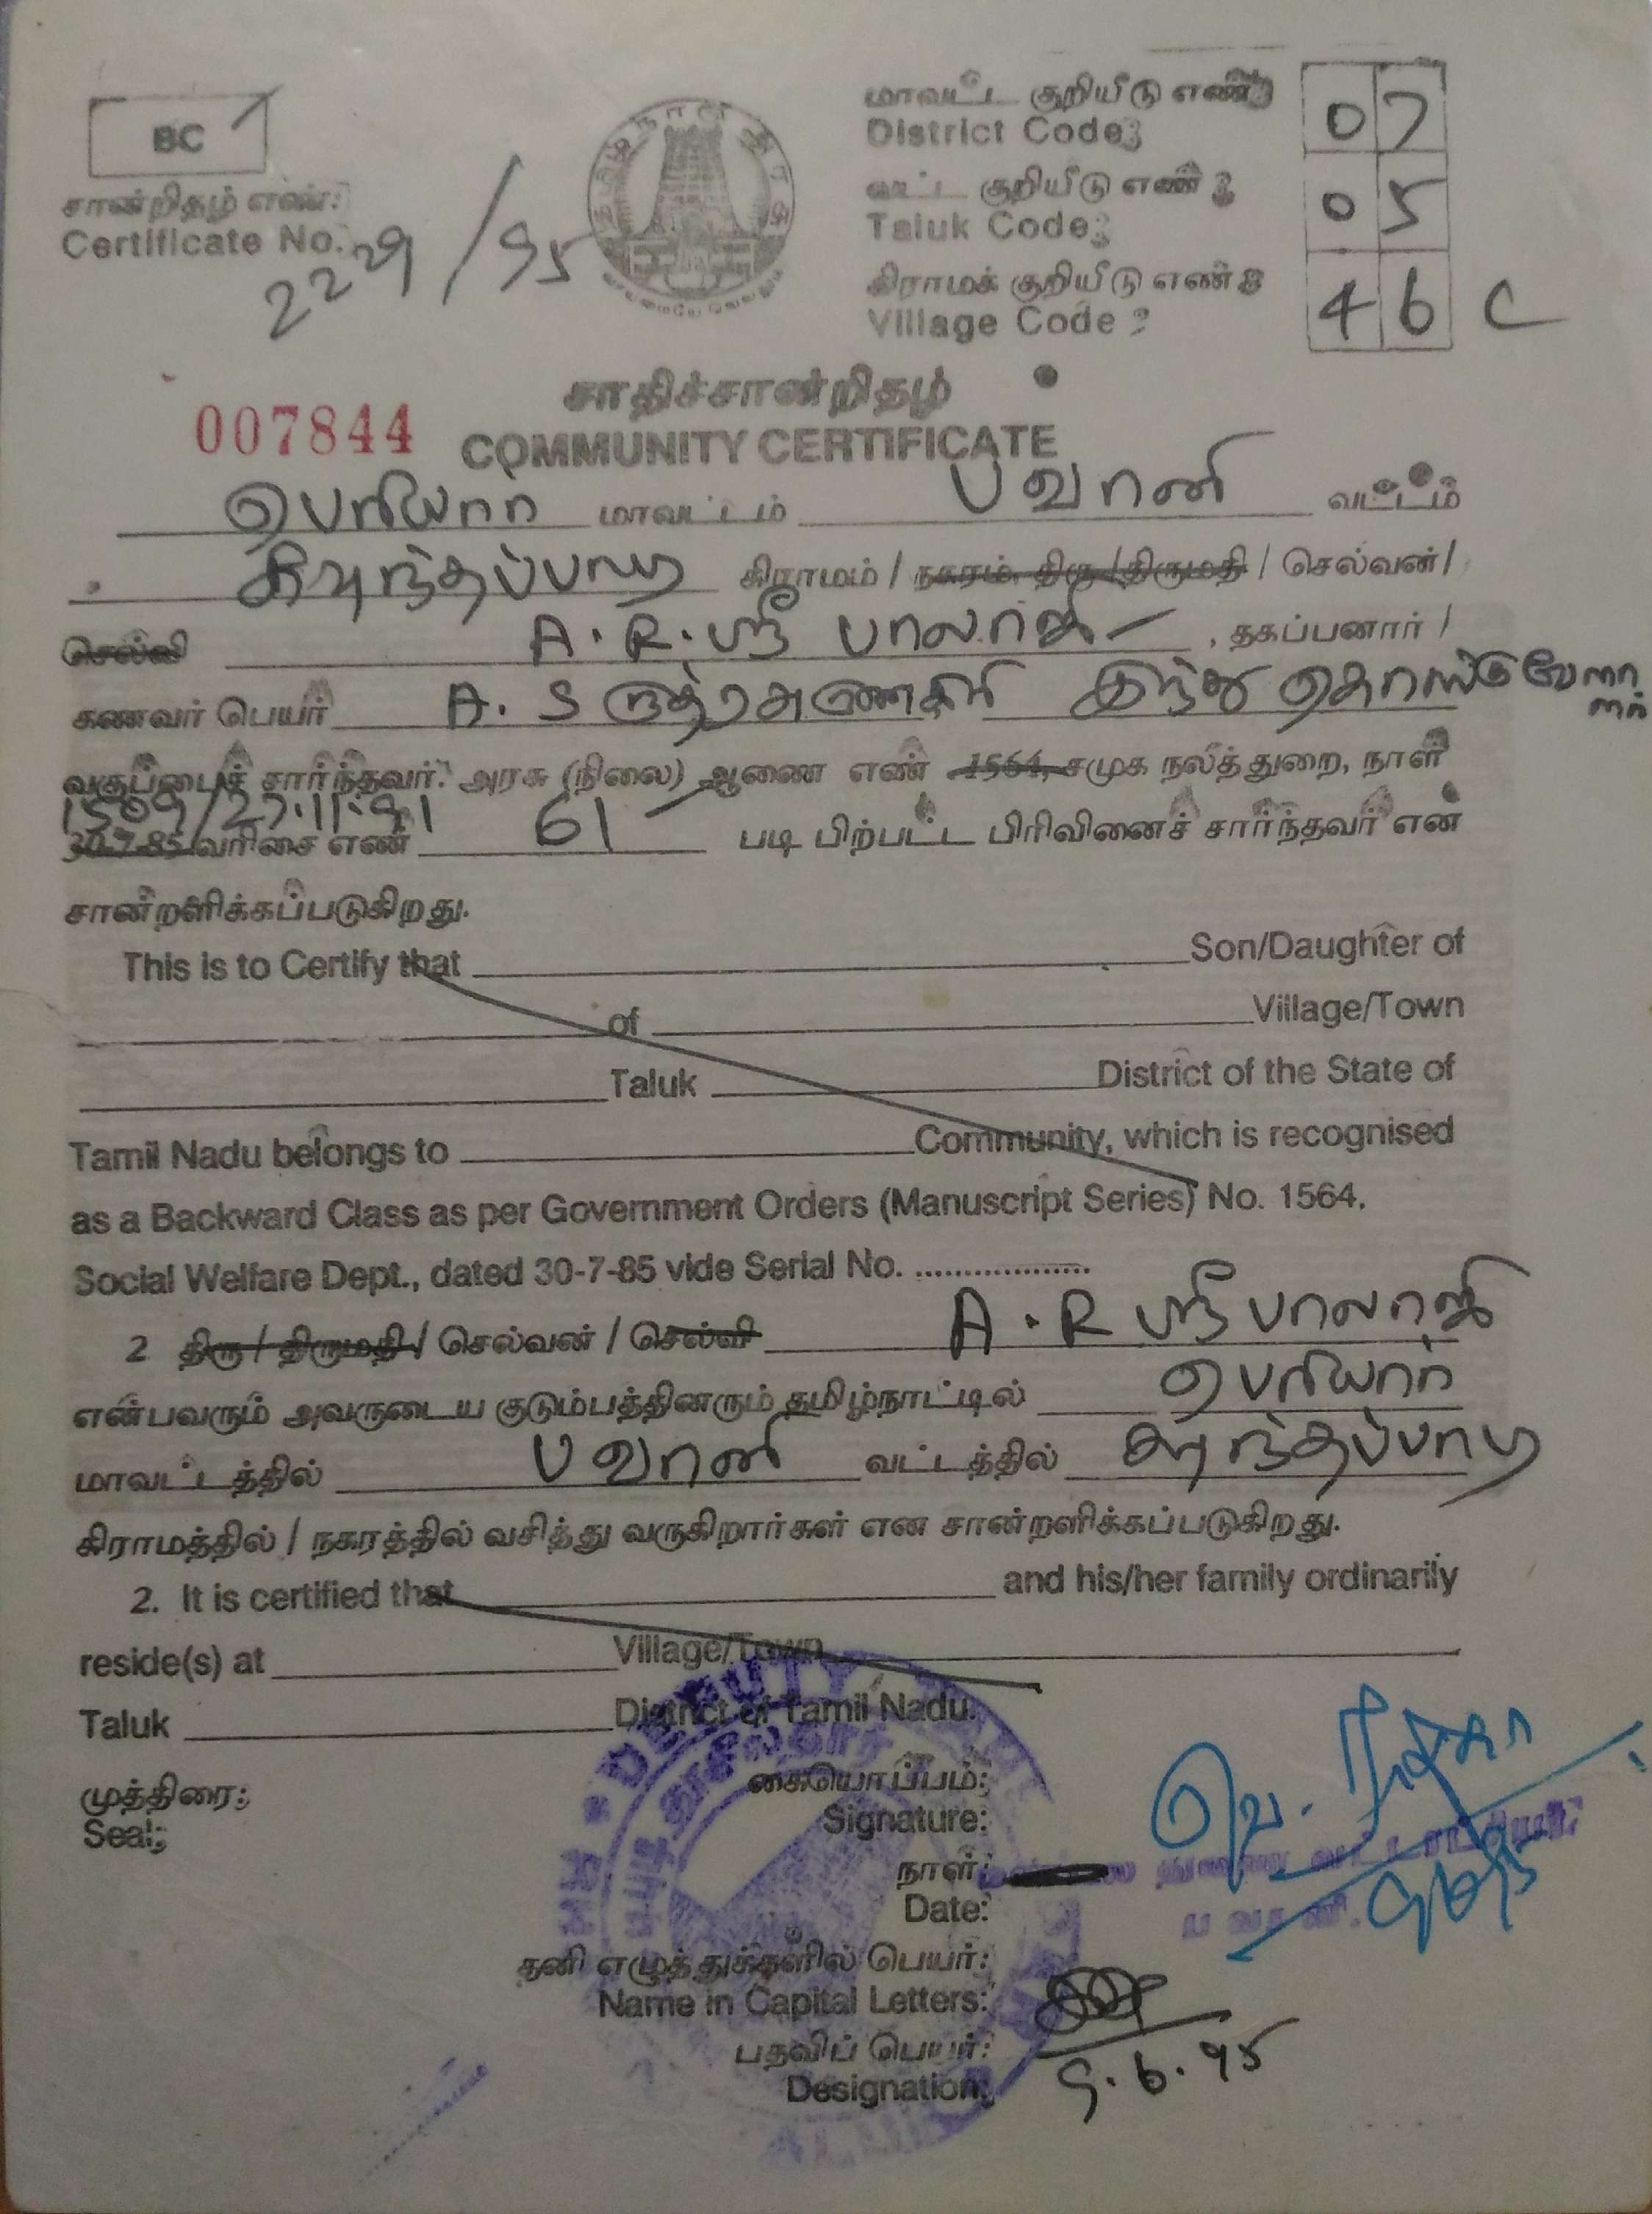 BC
சான்றிதழ் எண்:
Certificate No.
2229/95
மாவட்ட குறியீடு எண்
District Code
07
வட்ட குறியீடு எண்
Taluk Code
05
கிராமக் குறியீடு எண்
Village Code
46 C
சாதிச்சான்றிதழ்
007844
COMMUNITY CERTIFICATE
பெரியார் மாவட்டம் பவானி வட்டம்
கிராமம் / நகரம், திரு / திருமதி / செல்வன் /
செல்வி A.R.ஸ்ரீ பாலாஜி , தகப்பனார் /
கணவர் பெயர் A. S இந்து
வகுப்பைச் சார்ந்தவர். அரசு (நிலை) ஆணை எண் 1564, சமுக நலத்துறை, நாள்
1509/27.11.91
30-7-85 வரிசை எண் 61 படி பிற்பட்ட பிரிவினைச் சார்ந்தவர் என
சான்றளிக்கப்படுகிறது.
This is to Certify that Son/Daughter of
of Village/Town
Taluk District of the State of
Tamil Nadu belongs to Community, which is recognised
as a Backward Class as per Government Orders (Manuscript Series) No. 1564.
Social Welfare Dept., dated 30-7-85 vide Serial No. ..................
2 திரு / திருமதி / செல்வன் / செல்வி A.R ஸ்ரீ பாலாஜி
என்பவரும் அவருடைய குடும்பத்தினரும் தமிழ்நாட்டில் பெரியார்
மாவட்டத்தில் பவானி வட்டத்தில்
கிராமத்தில் / நகரத்தில் வசித்து வருகிறார்கள் என சான்றளிக்கப்படுகிறது.
2. It is certified that and his/her family ordinarily
reside(s) at Village/Town
Taluk District of Tamil Nadu.
முத்திரை:
Seal:
கையொப்பம்:
Signature:
நாள்:
Date:
பவானி.
தனி எழுத்துக்களில் பெயர்:
Name in Capital Letters:
பதவிப் பெயர்:
Designation:
9.6.95
DEPUTY